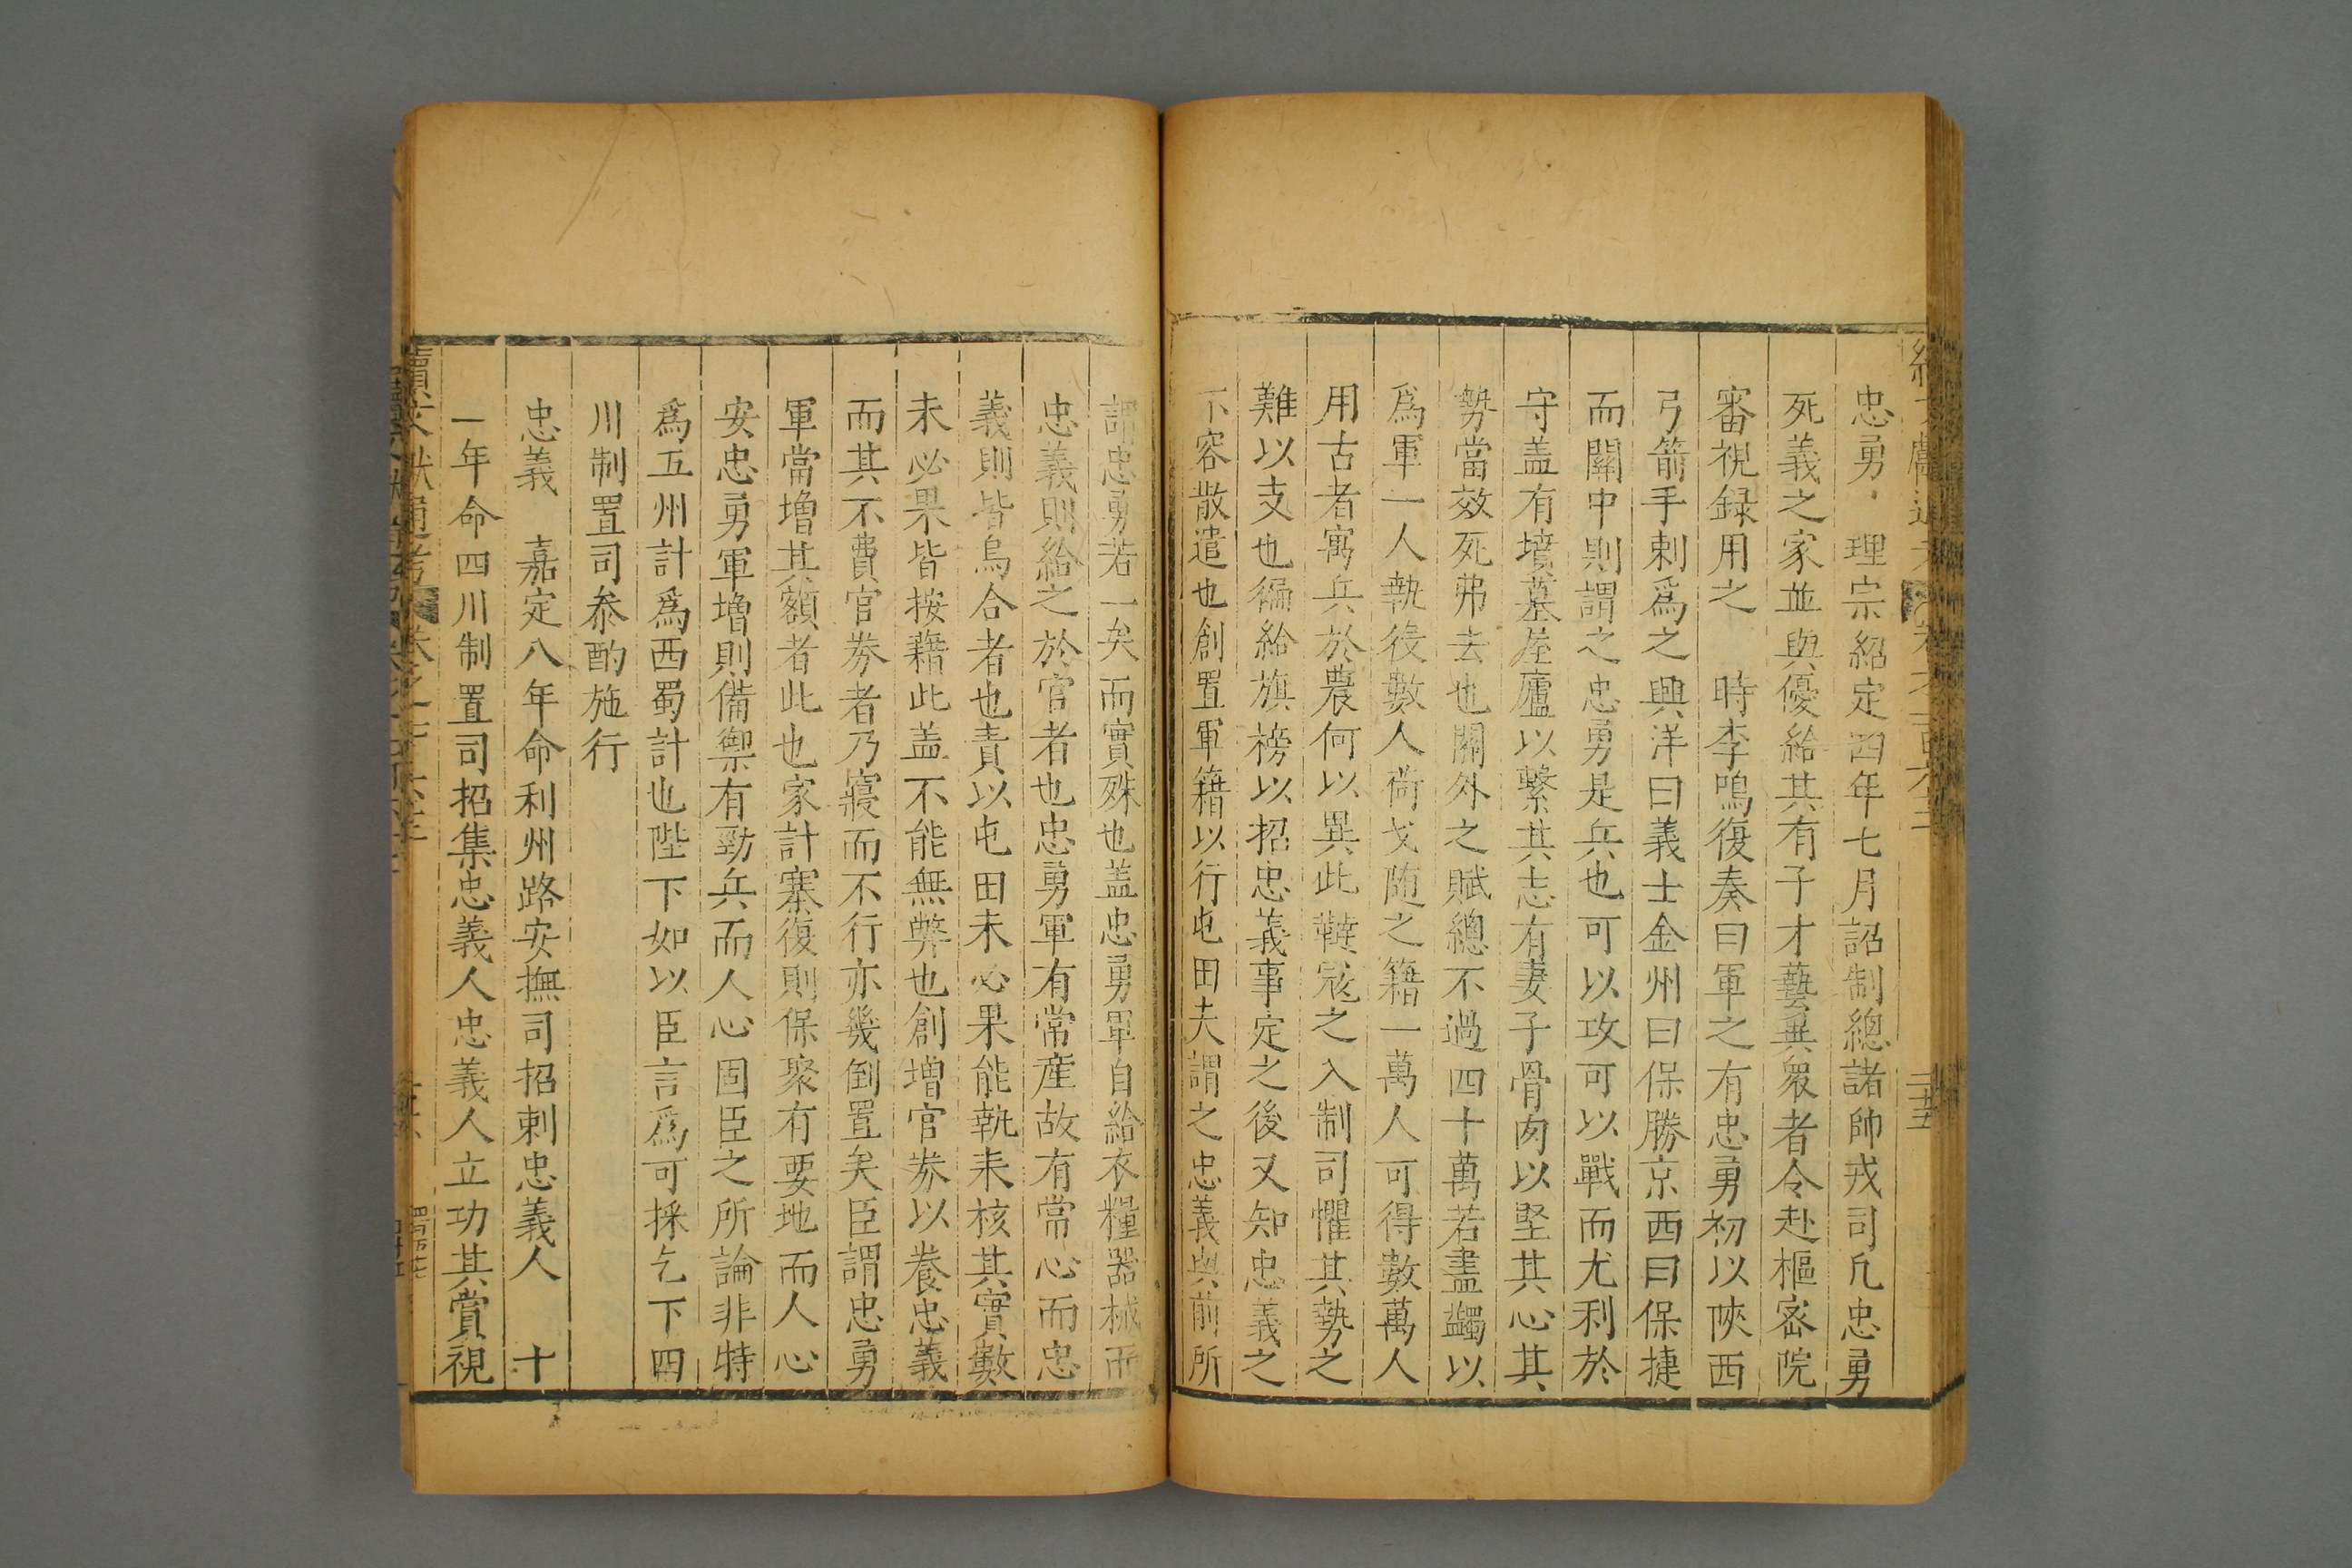 忠勇 理宗紹定四年七月詔制總諸帥戎司凡忠勇
死義之家並與優給其有子才藝異衆者令赴樞密院
審視録用之 時李鳴復奏曰軍之有忠勇初以陜西
弓箭手刺爲之興洋曰義士金州曰保勝京西曰保捷
而關中則謂之忠勇是兵也可以攻可以戰而尤利於
守盖有墳墓屋廬以繋其志有妻子骨肉以堅其心其
勢當效死弗去也關外之賦總不過四十萬若盡蠲以
爲軍一人執役數人荷戈随之籍一萬人可得數萬人
用古者寓兵於農何以異此韃冦之入制司懼其勢之
難以支也徧給旗榜以招忠義事定之後又知忠義之
不容散遣也創置軍籍以行屯田夫謂之忠義與前所
謂忠勇若一矣而實殊也盖忠勇軍自給衣糧器械而
忠義則給之於官者也忠勇軍有常産故有常心而忠
義則皆烏合者也責以屯田未必果能執耒核其實數
未必果皆按藉此盖不能無弊也創增官劵以養忠義
而其不費官劵者乃寢而不行亦幾倒置矣臣謂忠勇
軍當增其額者此也家計寨復則保聚有要地而人心
安忠勇軍增則備禦有勁兵而人心固臣之所論非特
爲五州計爲西蜀計也陛下如以臣言爲可採乞下四
川制置司叅酌施行
忠義 嘉定八年命利州路安撫司招刺忠義人 十
一年命四川制置司招集忠義人忠義人立功其賞視